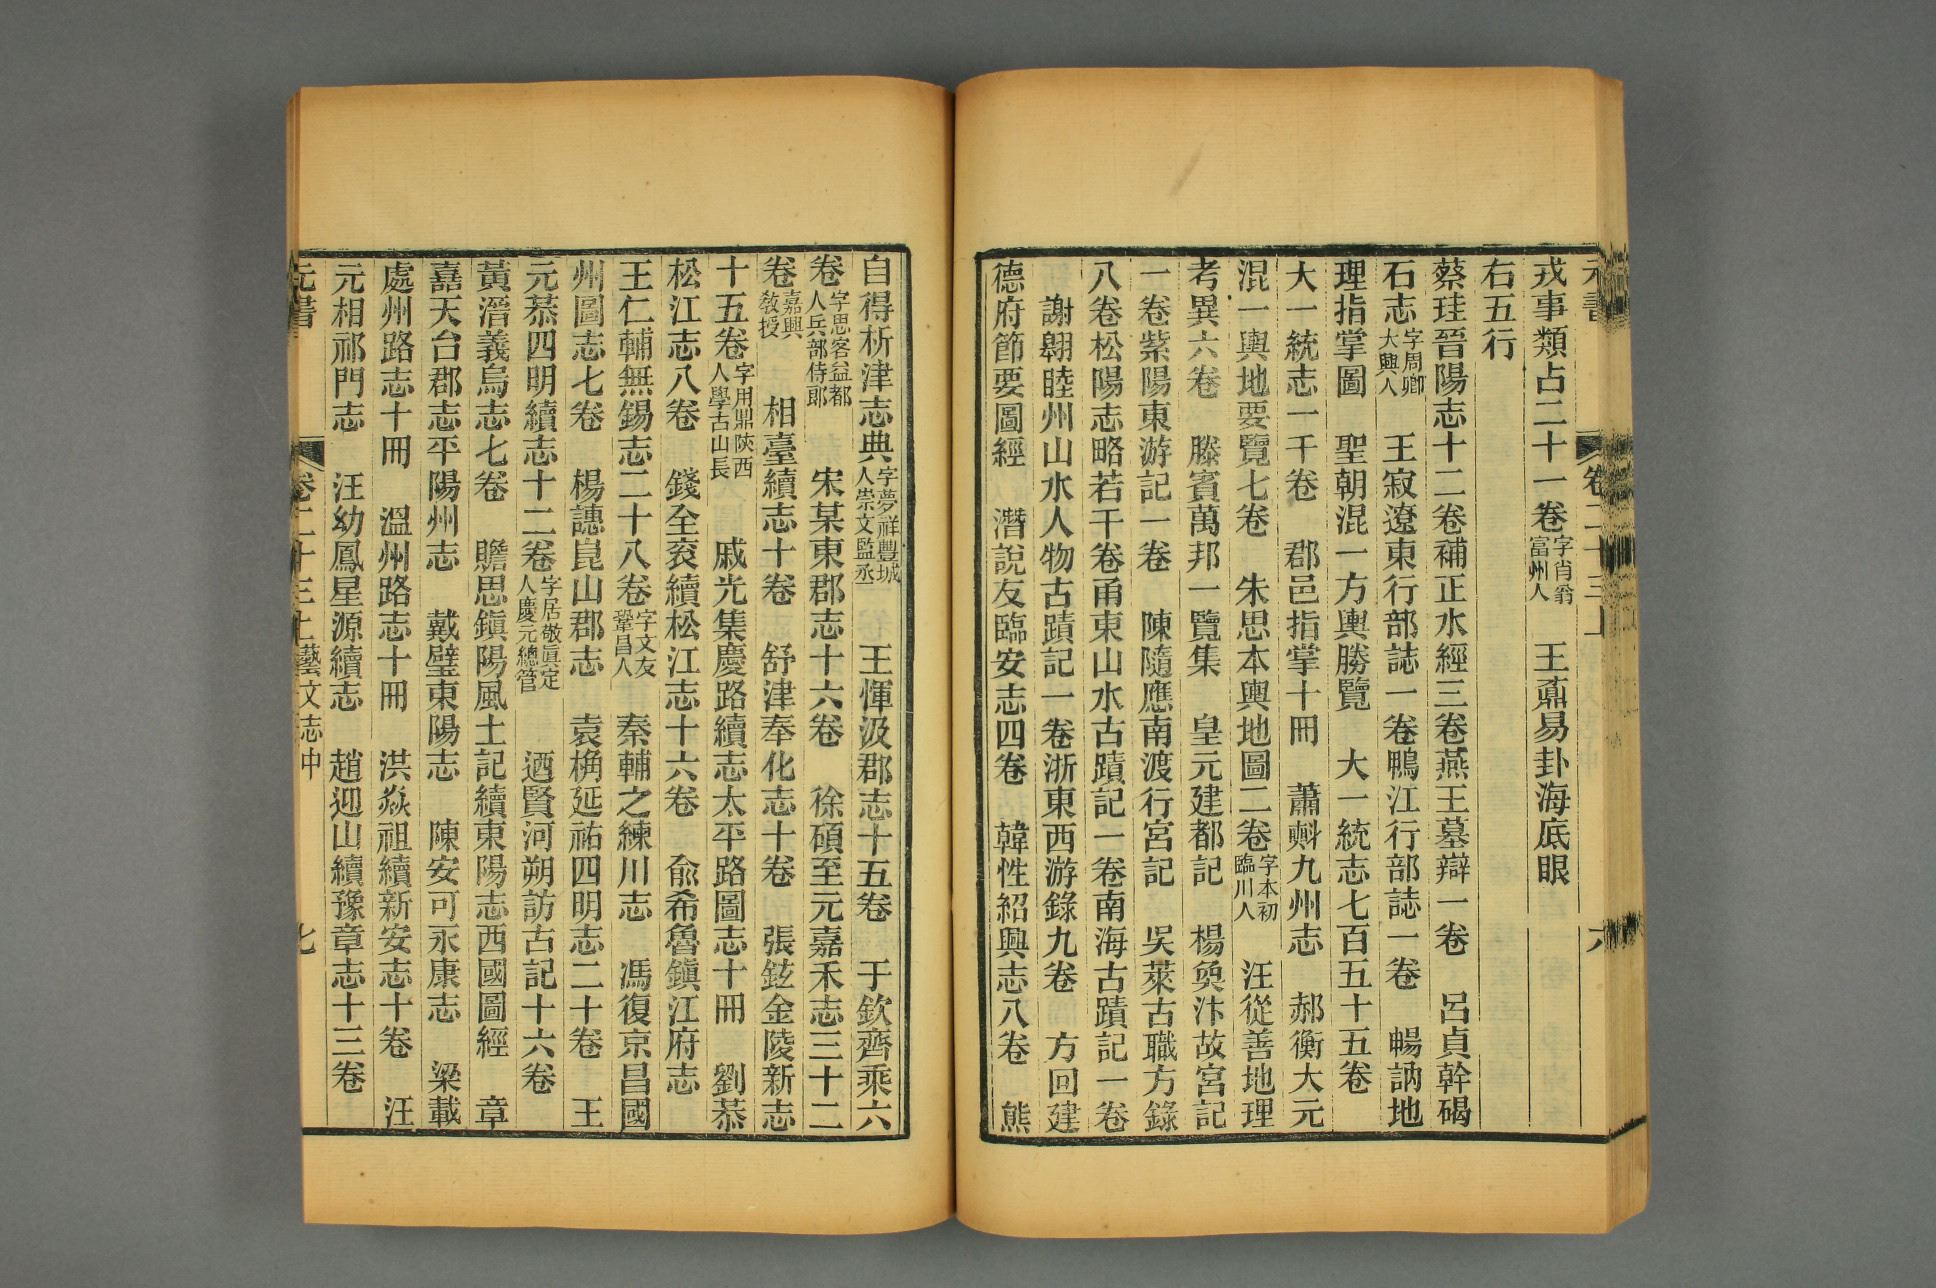 元書 卷二十三上 六
戎事類占二十一卷字肖翁富州人 王鼒易卦海底眼
右五行
蔡珪晉陽志十二卷補正水經三卷燕王墓辯一卷 呂貞幹碣
石志字周卿大興人 王寂遼東行部誌一卷鴨江行部誌一卷 暢訥地
理指掌圖 聖朝混一方輿勝覽 大一統志七百五十五卷
大一統志一千卷 郡邑指掌十冊 蕭㪺九州志 郝衡大元
混一輿地要覽七卷 朱思本輿地圖二卷字本初臨川人 汪從善地理
考異六卷 滕賓萬邦一覽集 皇元建都記 楊奐汴故宮記
一卷紫陽東游記一卷 陳隨應南渡行宮記 吳萊古職方錄
八卷松陽志略若干卷甬東山水古蹟記一卷南海古蹟記一卷
謝翱睦州山水人物古蹟記一卷浙東西游錄九卷 方回建
德府節要圖經 潛說友臨安志四卷 韓性紹興志八卷 熊
自得析津志典字夢祥豐城人崇文監丞 王惲汲郡志十五卷 于欽齊乘六
卷字思容益都人兵部侍郎 宋某東郡志十六卷 徐碩至元嘉禾志三十二
卷嘉興教授 相臺續志十卷 舒津奉化志十卷 張鉉金陵新志
十五卷字用鼎陝西人學古山長 戚光集慶路續志太平路圖志十冊 劉蒸
松江志八卷 錢全袞續松江志十六卷 俞希魯鎮江府志
王仁輔無錫志二十八卷字文友鞏昌人 秦輔之練川志 馮復京昌國
州圖志七卷 楊譓崑山郡志 袁桷延祐四明志二十卷 王
元恭四明續志十二卷字居敬眞定人慶元總管 迺賢河朔訪古記十六卷
黃溍義烏志七卷 贍思鎭陽風土記續東陽志西國圖經 章
嘉天台郡志平陽州志 戴璧東陽志 陳安可永康志 梁載
處州路志十冊 溫州路志十冊 洪焱祖續新安志十卷 汪
元相祁門志 汪幼鳳星源續志 趙迎山續豫章志十三卷
元書 卷二十三上藝文志中 七